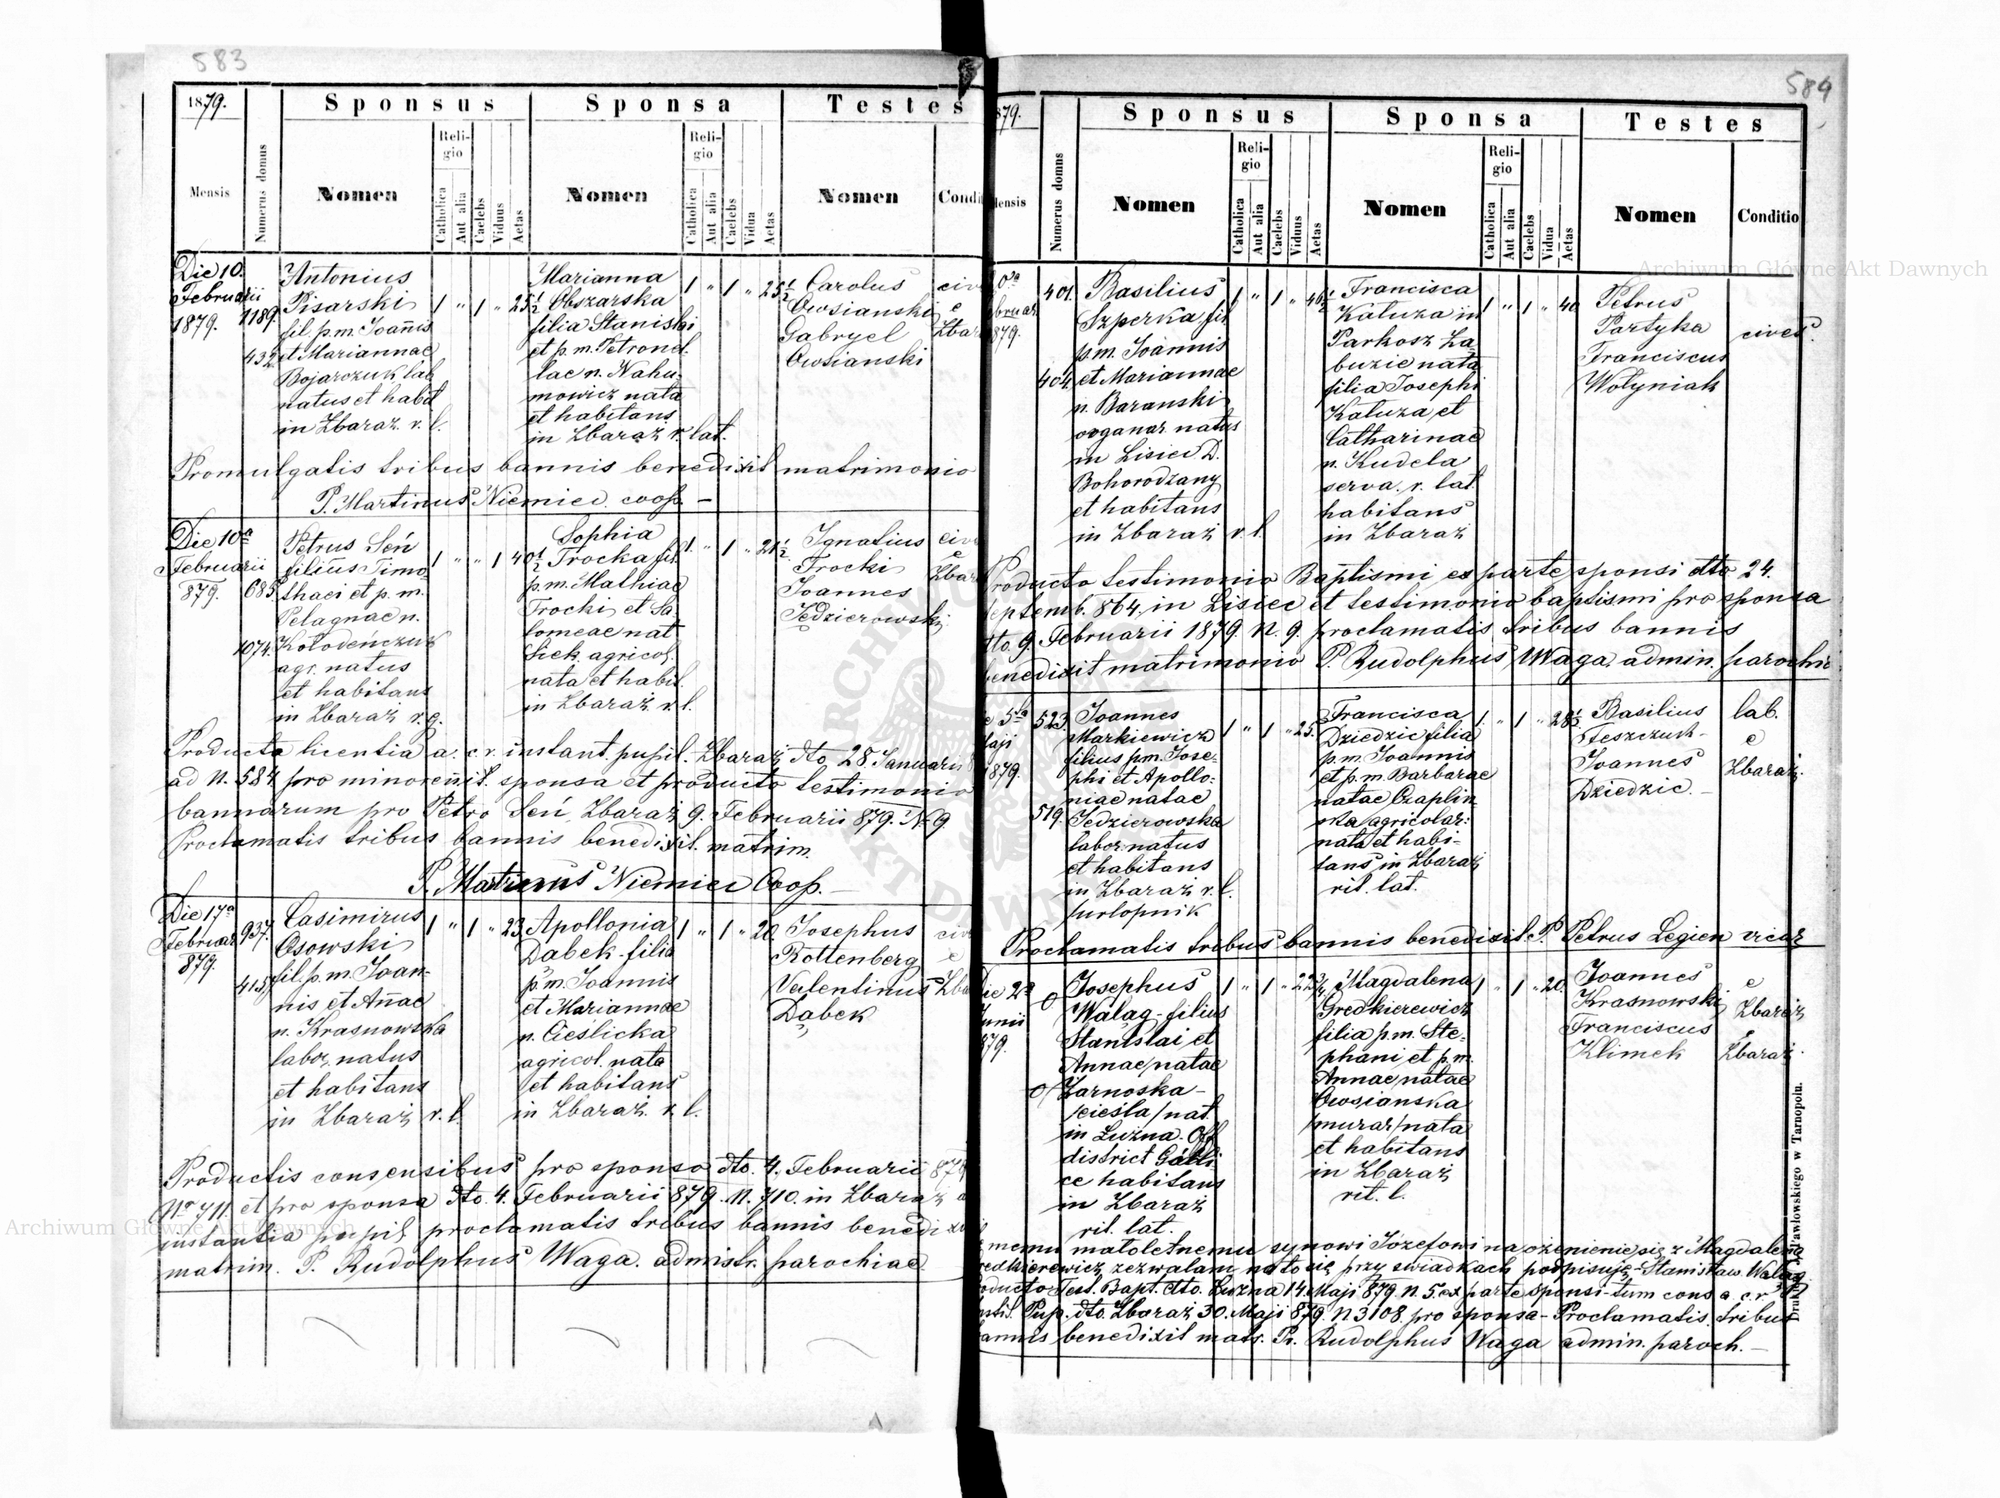 583
1879.
Sponsus
Sponsa
Testes
Mensis
Numerus domus
Nomen
Religio
Catholica
Aut alia
Caelebs
Viduus
Aetas
Nomen
Religio
Catholica
Aut alia
Caelebs
Vidua
Aetas
Nomen
Condi
Die 10.
Februarii
1879.
1189.
432
Antonius
Pisarski
fil. p.m. Joannis
et Mariannae
Bojarczuk lab.
natus et habit
in Zbaraż r. l.
1 " 1 " 25½
Marianna
Obszarska
filia Stanisl:
et p.m. Petronel
lae n. Nahu-
mowicz nata
et habitans
in Zbaraż r. lat.
1 " 1 " 25½
Carolus
Owsianski
Gabryel
Owsianski
civ
e
Zbar
Promulgatis tribus bannis benedixit matrimonio
P. Martinus Niemiec coop. —
Die 10a
Februarii
879.
685
1074.
Petrus Seń
filius Timo
thaei et p. m.
Pelagnae n.
Kołodeńczuk
agr. natus
et habitans
in Zbaraż r. g.
1 " " 1 40½
Sophia
Trocka fil.
p.m. Mathiae
Trocki et Sa-
lomeae nat
Siek agricol.
nata et habit.
in Zbaraż r. l.
1. " 1 " 21½
Ignatius
Trocki
Joannes
Jędzierowski
civ
e
Zbar
Producta licentia a. c. r. instant. pupil. Zbaraż dto 28 Januarii
ad N. 584 pro minorenit. sponsa et producto testimonio
bannarum pro Petro Seń, Zbaraż 9. Februarii 879. N. 9.
Proclamatis tribus bannis benedixit matrim.
P. Martinus Niemiec Coop. —
Die 17a
Februar
879.
937.
415
Casimirus
Osowski
fil. p.m. Joan-
nis et Annae
n. Krasnowska
labor. natus
et habitans
in Zbaraż r. l.
1 " 1 " 23.
Apollonia
Dabek filia
p.m. Joannis
et Mariannae
n. Cieślicka
agricol. nata
et habitans
in Zbaraż. r. l.
1 " 1 " 20.
Josephus
Rottenberg
Valentinus
Dąbek
civ
e
Zba
Productis consensibus pro sponso dto. 4. Februarii 879
No 711. et pro sponsa dto. 4. Februarii 879. N. 710. in Zbaraż a
instantia pupil. proclamatis tribus bannis benedixit
matrim. P. Rudolphus Waga. admistr. parochiae
584
879.
Sponsus
Sponsa
Testes
Mensis
Numerus domus
Nomen
Religio
Catholica
Aut alia
Caelebs
Viduus
Aetas
Nomen
Religio
Catholica
Aut alia
Caelebs
Vidua
Aetas
Nomen
Conditio
0a
bruar
879.
401.
404
Basilius
Szperka fil
p.m. Joannis
et Mariannae
n. Baranski
organar. natus
in Lisiec D.
Bohorodzany
et habitans
in Zbaraż r. l.
1 " 1 " 46½
Francisca
Kałuza in
Parkosz Ła-
buzie nata
filia Josephi
Kałuza et
Catharinae
n. Kudela
serva. r. lat.
habitans
in Zbaraż
1 " 1 " 40
Petrus
Partyka
Franciscus
Wołyniak
cives.
Producto testimonio Baptismi ex parte sponsi dto 24.
eptemb. 864, in Lisiec et testimonio baptismi pro sponsa
dto. 9. Februarii 1879. N. 9. proclamatis tribus bannis
benedixit matrimonio P. Rudolphus Waga admin. parochie.
e 5ta
Maji
1879.
523
519.
Joannes
Markiewicz
filius p.m. Jose-
phi et Apollo-
niae natae
Jędzierowska
labor. natus
et habitans
in Zbaraż r. l.
furlopnik
1 " 1 " 25.
Francisca
Dziedzic filia
p.m. Joannis
et p.m. Barbarae
natae Czaplin
ska agricolar:
nata et habi-
tans in Zbaraż
rit. lat.
1. " 1 " 28½
Basilius
Teszczuk -
Joannes
Dziedzic. —
lab.
e
Zbaraż.
Proclamatis tribus bannis benedixit P. Petrus Legien vicar
Die 2a
Junii
879.
0
0
Josephus
Wałąg - filius
Stanislai et
Annae natae
Zarnoska -
/cieśla/ nat.
in Łużna Off
district Galli
ce habitans
in Zbaraż
rit. lat.
1 " 1 " 22¾
Magdalena
Gredkierewicz
filia p.m. Ste-
phani et p.m.
Annae natae
Owsianska
/murar/ nata
et habitans
in Zbaraż
rit. l.
1 " 1 " 20.
Joannes
Krasnowski
Franciscus
Klimek
e
Zbaraż
e
Zbaraż.
memu małoletnemu synowi Józefowi na ożenienie się z Magdaleną
redkierewicz zezwalam na to się przy świadkach podpisuję - Stanisław Wałąg
oducto Test. Bapt. dto. Łużna 14 Maji 879. N. 5. ex parte sponsi - tum cons a. c. r.
nstit. Pup. dto. Zbaraż 30. Maji 879. N 3108. pro sponsa - Proclamatis tribus
annis benedixit matr. Pr. Rudolphus Waga admin. paroch. —
Druk. J. Pawłowskiego w Tarnopolu.
Archiwum Główne Akt Dawnych
Archiwum Główne Akt Dawnych